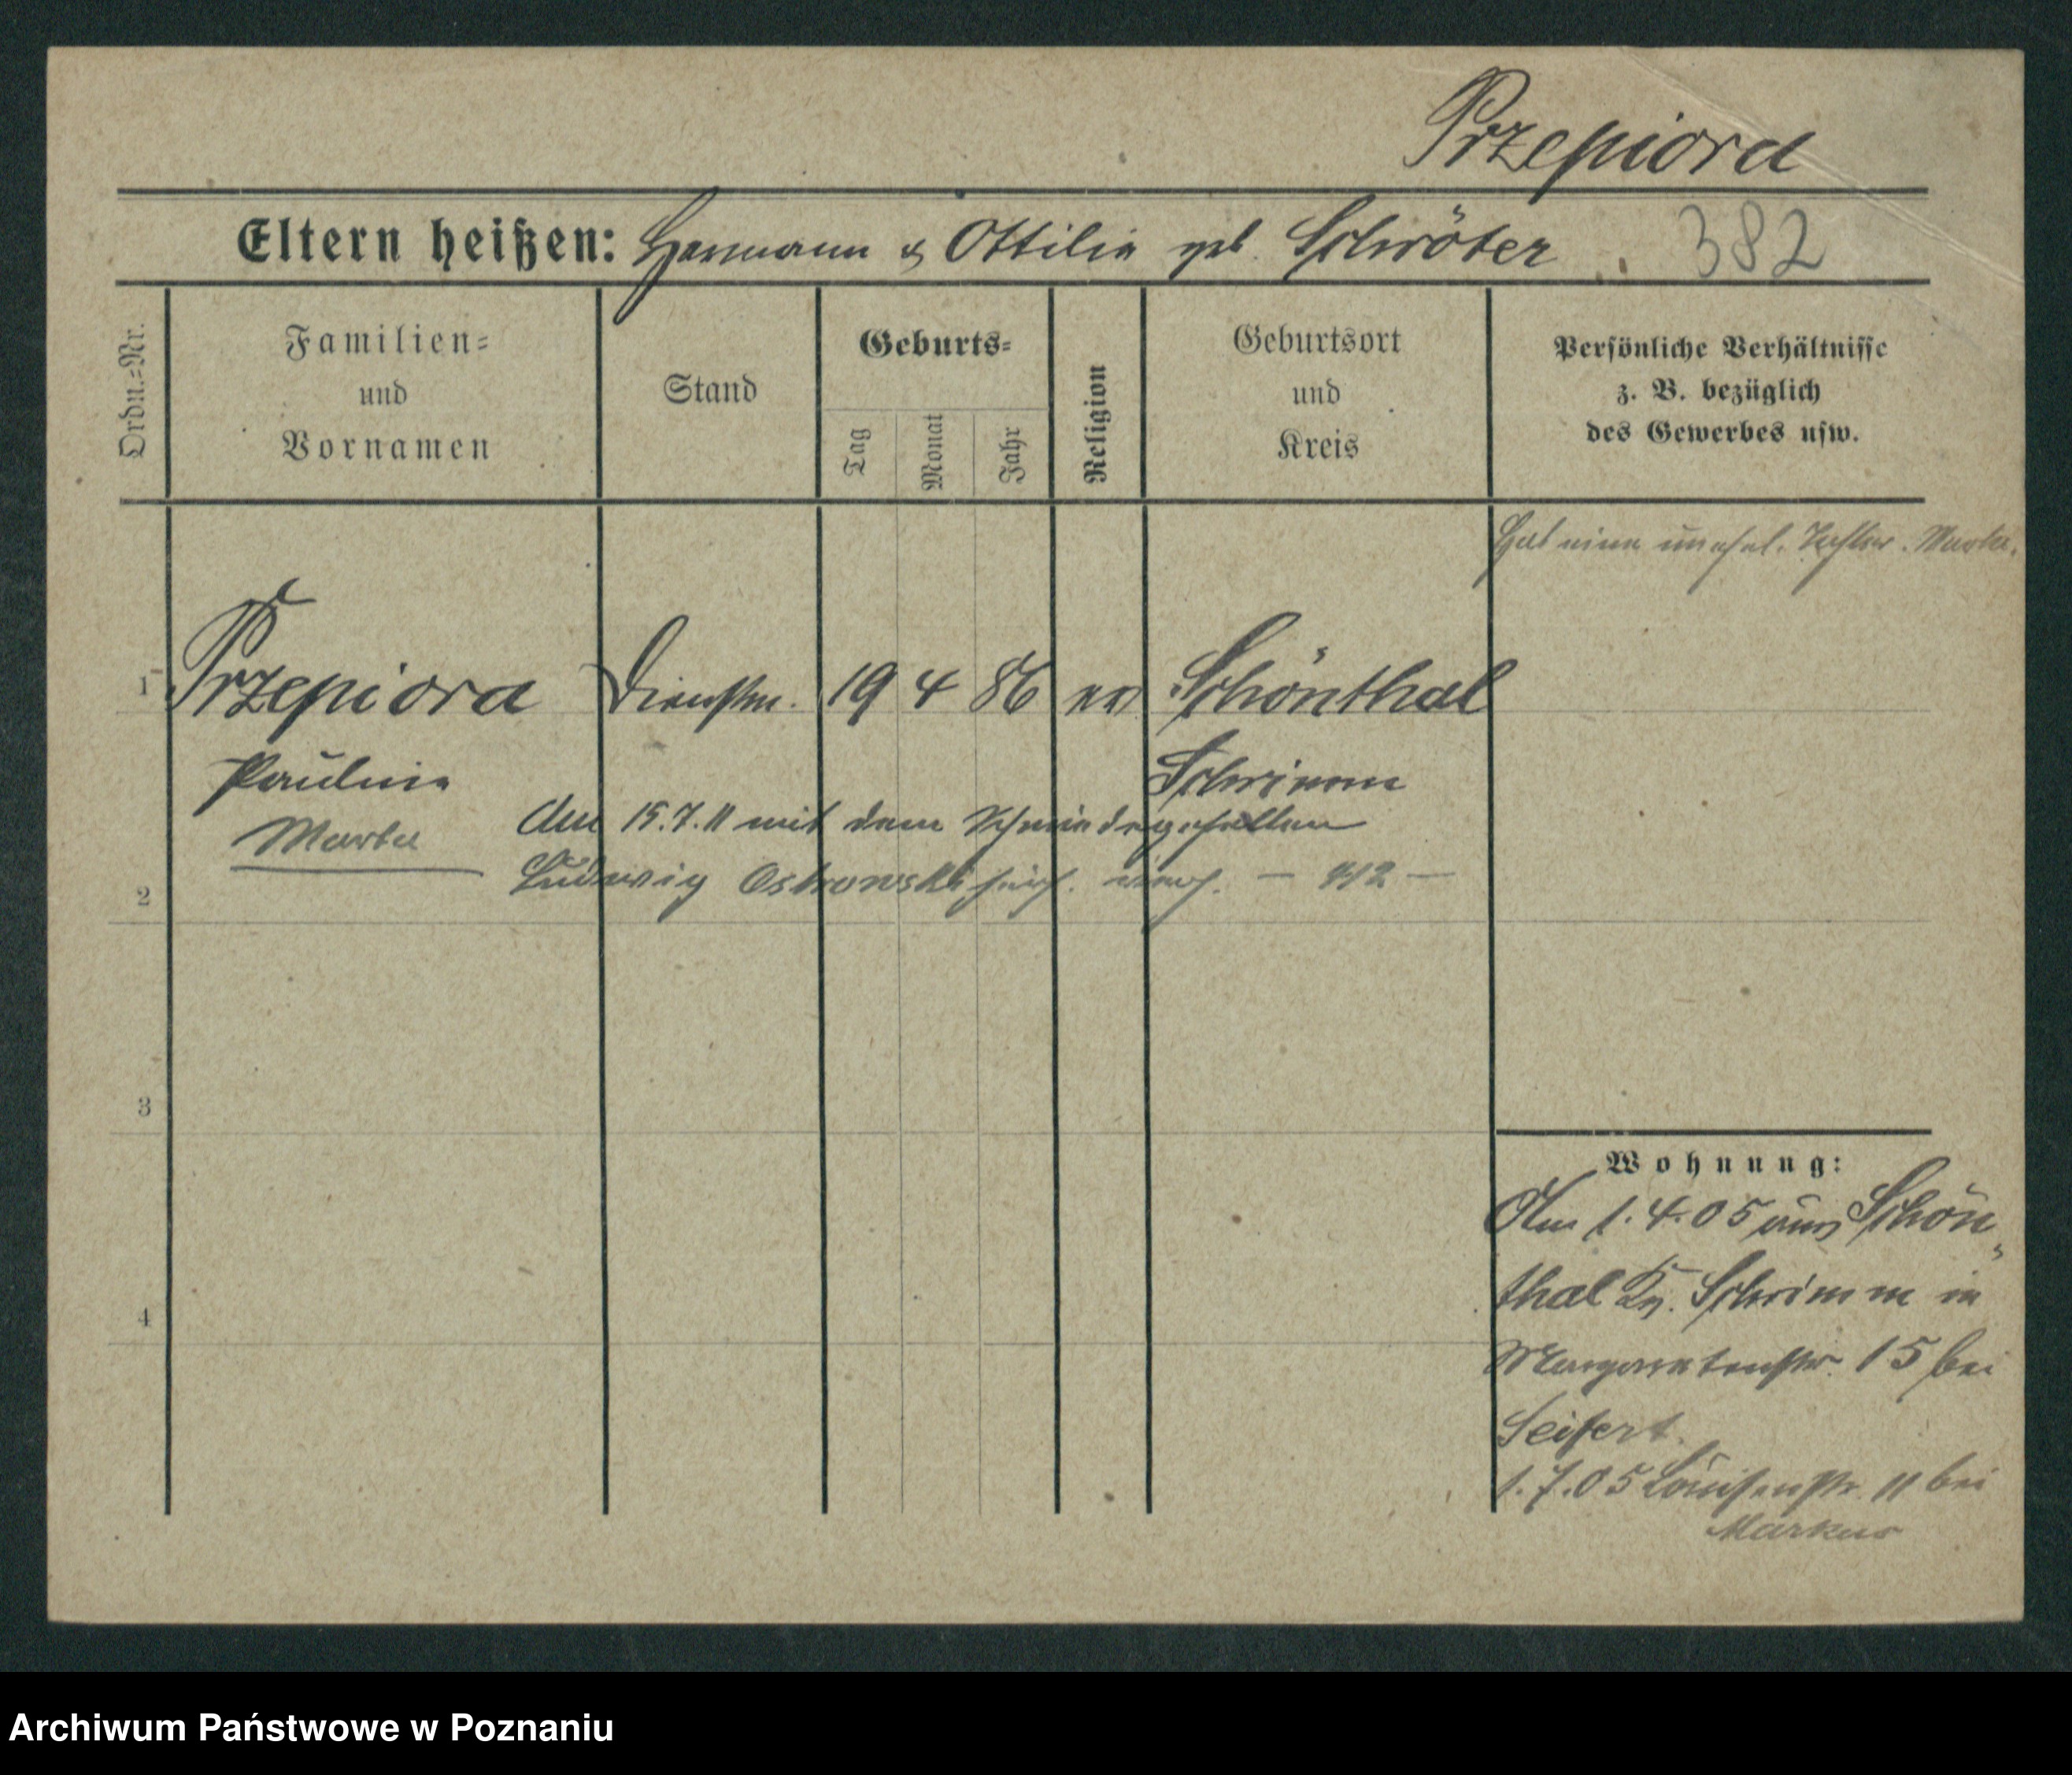 Przepiora
Eltern heißen: Hermann & Ottilie geb. Schröter 382
Ordn.=Nr.
Familien=
und
Vornamen
Stand
Geburts=
Tag
Monat
Jahr
Religion
Geburtsort
und
Kreis
Persönliche Verhältnisse
z. B. bezüglich
des Gewerbes usw.
Hat eine unehel. Tochter. Marta.
1 Przepiora Dienstm. 19 4 86 ev Schönthal
Pauline Schrimm
Am 15.7.11 mit dem Schmiedegesellen
Marta
Ludwig Ostrowski hier verh.
2
3
Wohnung:
Am 1.4.05 aus Schön„
thal Kr. Schrimm in
4
Margaretenstr. 15 bei
Seifert.
1.7.05 Louisenstr. 11 bei
Markus
Archiwum Państwowe w Poznaniu